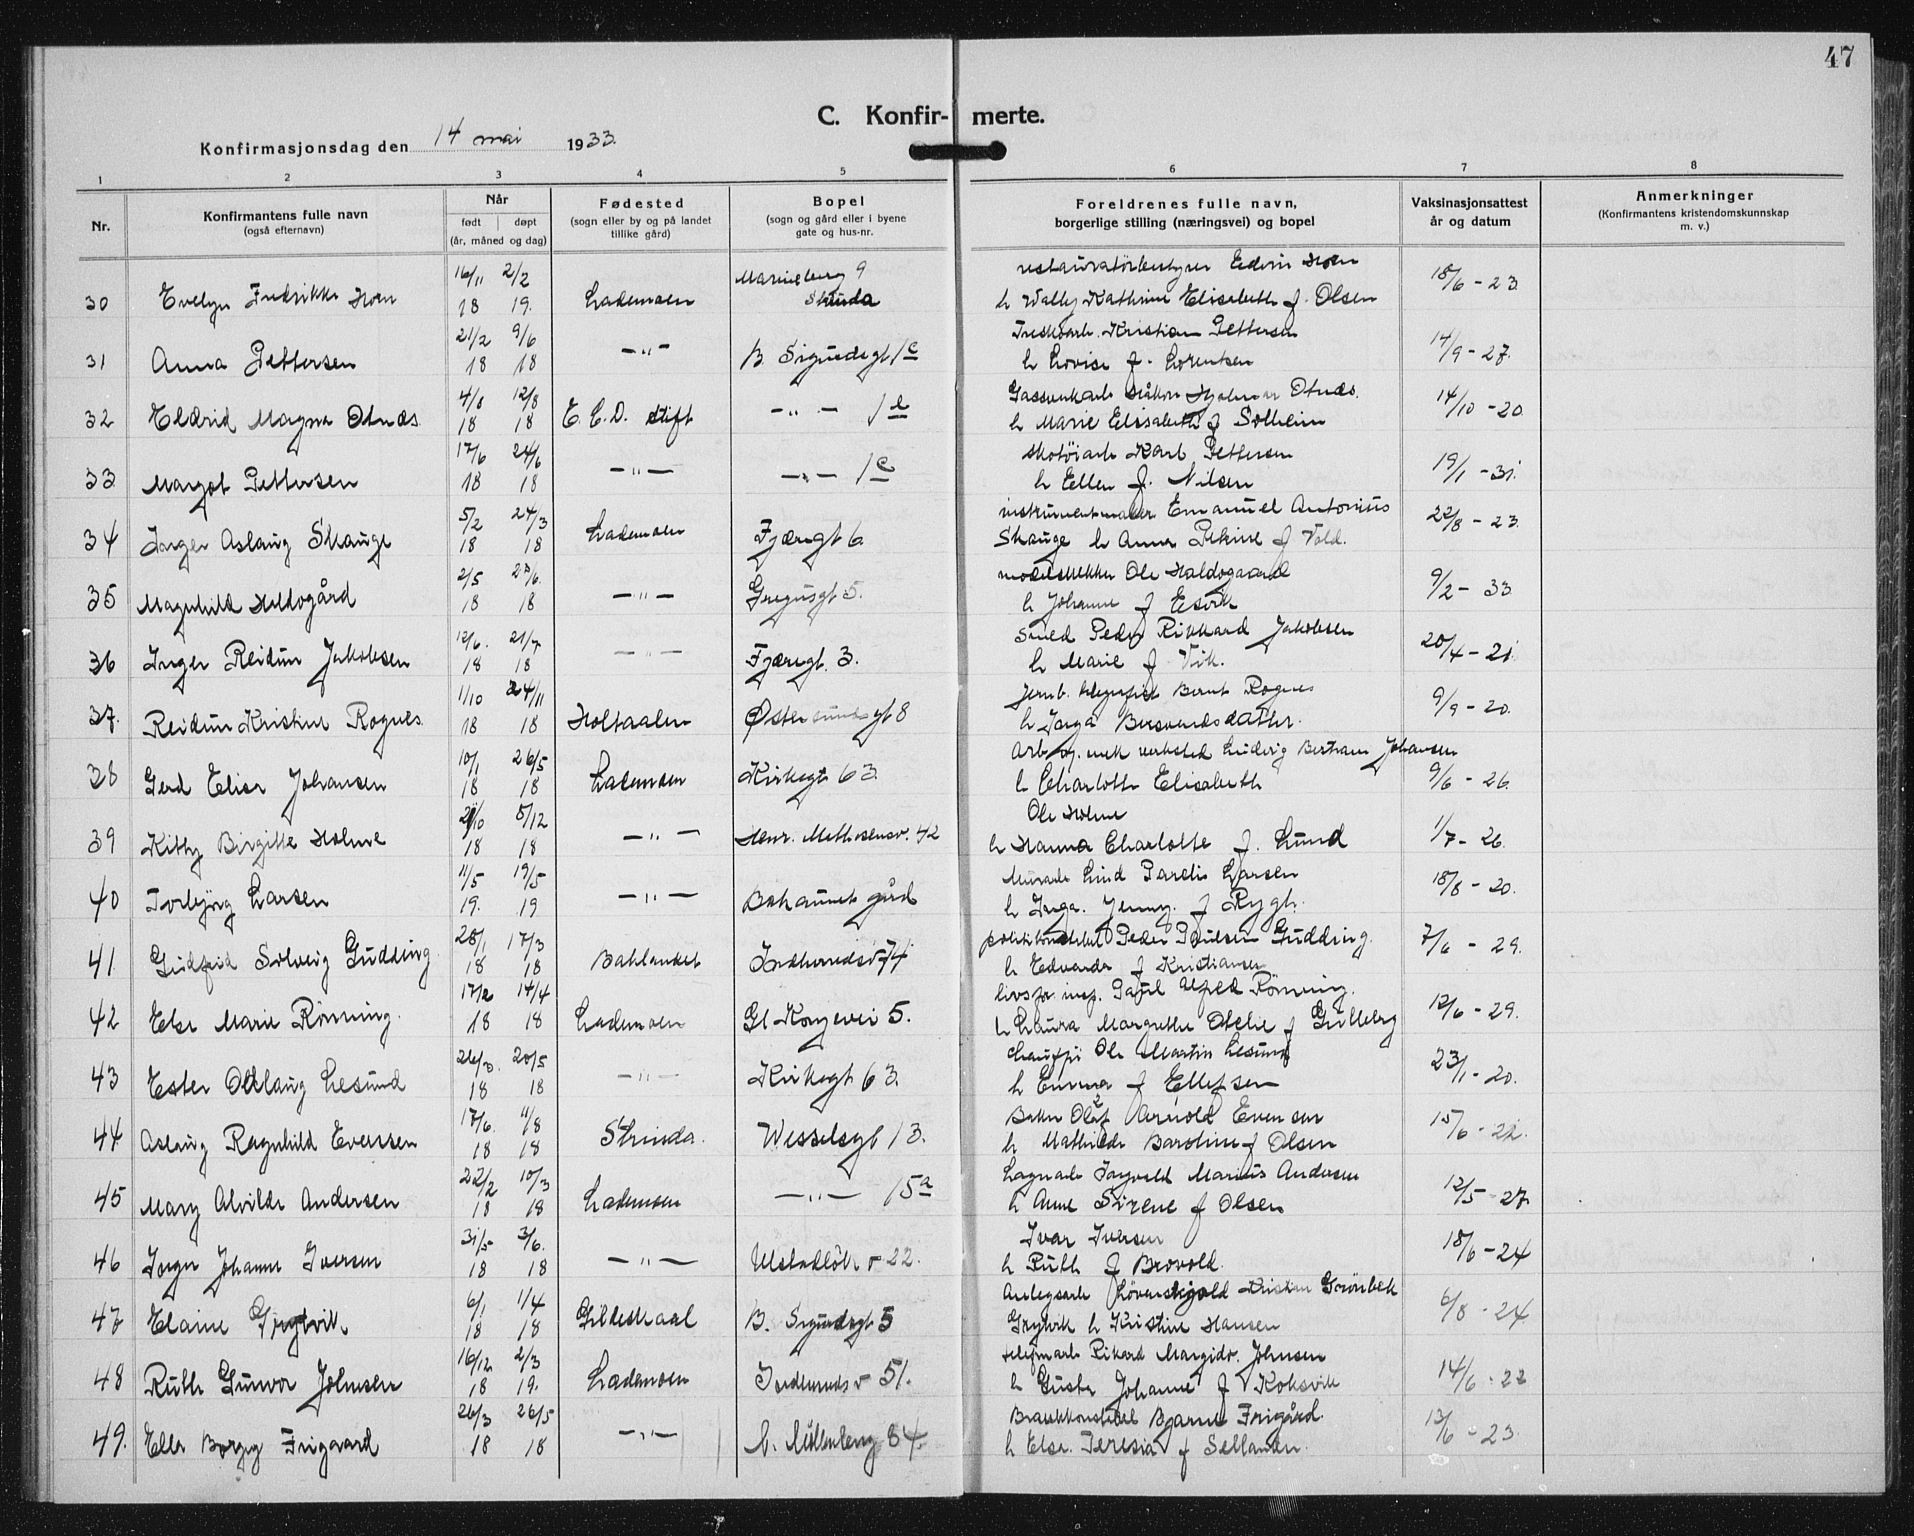 47
C. Konfirmerte.
Konfirmasjonsdag den 14 mai 1933.
1 2 3 4 5 6 7 8
Nr. Konfirmantens fulle navn (også efternavn) Når født døpt (år, måned og dag) Fødested (sogn eller by og på landet tillike gård) Bopel (sogn og gård eller i byene gate og hus-nr.) Foreldrenes fulle navn, borgerlige stilling (næringsvei) og bopel Vaksinasjonsattest år og datum Anmerkninger (Konfirmantens kristendomskunnskap m. v.)
restauratørbestyrer Edvin Hoen
30 Evelyn Fredrikke Hoen 16/11 18 2/2 19. Lademoen Marieberg 9 Strinda h Wally Kathrine Elisabeth f. Olsen 18/6 - 23
Kristian Pettersen
31 Anna Pettersen 21/2 18 9/6 18 -"- B. Sigurdsgt 1c h Lovise f. Lorentsen 14/9 - 27.
Håkon Hjalmar Otnes.
32 Eldrid Magna Otnes 4/8 18 12/8 18 E. C. D. stift -"- 1e h Marie Elisabeth f Solheim 14/10 - 20
skotøiarb Karl Pettersen
33 Margot Pettersen 17/6 18 24/6 18 -"- -"- 1c h Ellen f. Nilsen 19/1 - 31.
instrumentmaker Emanuel Antonius
34 Inger Aslaug Skauge 5/2 18 24/3 18 Lademoen Fjæregt 6 Skauge h Anna Pekine f Vold. 22/8 - 23
Ole Haldogaard
35 Magnhild Haldogård 2/5 18 18 -"- Gregusgt 5. h Johanne f Eesvik 9/2 - 33
Smed Peder Rikkard Jakobsen
36 Inger Reidun Jakobsen 12/6. 18 21/7 18 -"- Fjæregt. 3. h Marie f Vik. 20/4 - 21
Jernb. telegrafist Bernt Rognes
37. Reidun Kristine Rognes 1/10 18 24/11 18 Holtaalen Østersundsgt 8 h Inga Bersvendsdatter. 9/9 - 20.
Arb. og. mek verksted Ludvig Bertram Johansen
38 Gerd Elise Johansen 10/1 18 26/5 18 Lademoen Kirkegt 63. h Charlotte Elisabeth 9/6 - 26.
Ole Holme
39 Kitty Birgitte Holme 21/10 18 5/12 18 -"- Henr. Mathesensv. 42 h Hanna Charlotte f. Lund 1/7 - 26.
Murarb Lind Parelis Larsen
40 Torbjørg Larsen 11/5 19. 19/5 19 -"- Bakaunet gård h Inga. Jenny. f Rygh. 18/8 - 20.
politikonstabel Peder Paulsen Gudding.
41 Gudfrid Solveig Gudding 28/1 18 17/3 18 Baklandet Indherredsv 74 h Edvarda f Kristiansen 7/6 - 29.
livsfor. insp. Paul Alfred Rønning.
42 Else Marie Rønning 17/2 18 14/4 18 Lademoen Gl Kongevei 5. h Laura Margrethe Otelie f Gulleberg 12/6 - 29.
Ole Martin Lesund
43 Ester Oddlaug Lesund 26/3. 18 20/5 18 -"- Kirkegt 63. h Emma f Ellefsen 23/1 - 20.
Baker Olaf Arnold Evensen
44 Aslaug Ragnhild Evensen 17/6. 18 11/8 18 Strinda. Wesselsgt 13. h Mathilde Baroline f Olsen 15/6 - 22.
Lagerarb Ingvald Marius Andersen
45 Mary Alvilde Andersen 22/2 18 10/3 18 Lademoen -"- 15a h Anne Sirene f Olsen 12/5 - 27
Ivar Iversen
46 Inger Johanne Iversen 31/5 18 3/6. 18 -"- Ulstadløk v 22. h Ruth f Brovold. 18/6 - 24
Anlegsarb Løvenskjold Kristian Grønbek
47 Elaine Grytvik 6/1 18 1/4 18 Gildeskaal B. Sigurdsgt 5 Grytvik h Kristine Hansen 6/8 - 24
Rikard Margido. Johnsen
48 Ruth Gunvor Johnsen 16/12 18 2/3 19. Lademoen Indherreds v 51. h Gusta Johanne f Koksvik 14/6 - 22
Brandkonstabel Bjarne Frigård.
49. Ella Borgny Frigaard 26/3 18 26/5 18 -"- N. Møllenberg 84 h Else. Teresia f Sellanden. 12/6 - 23